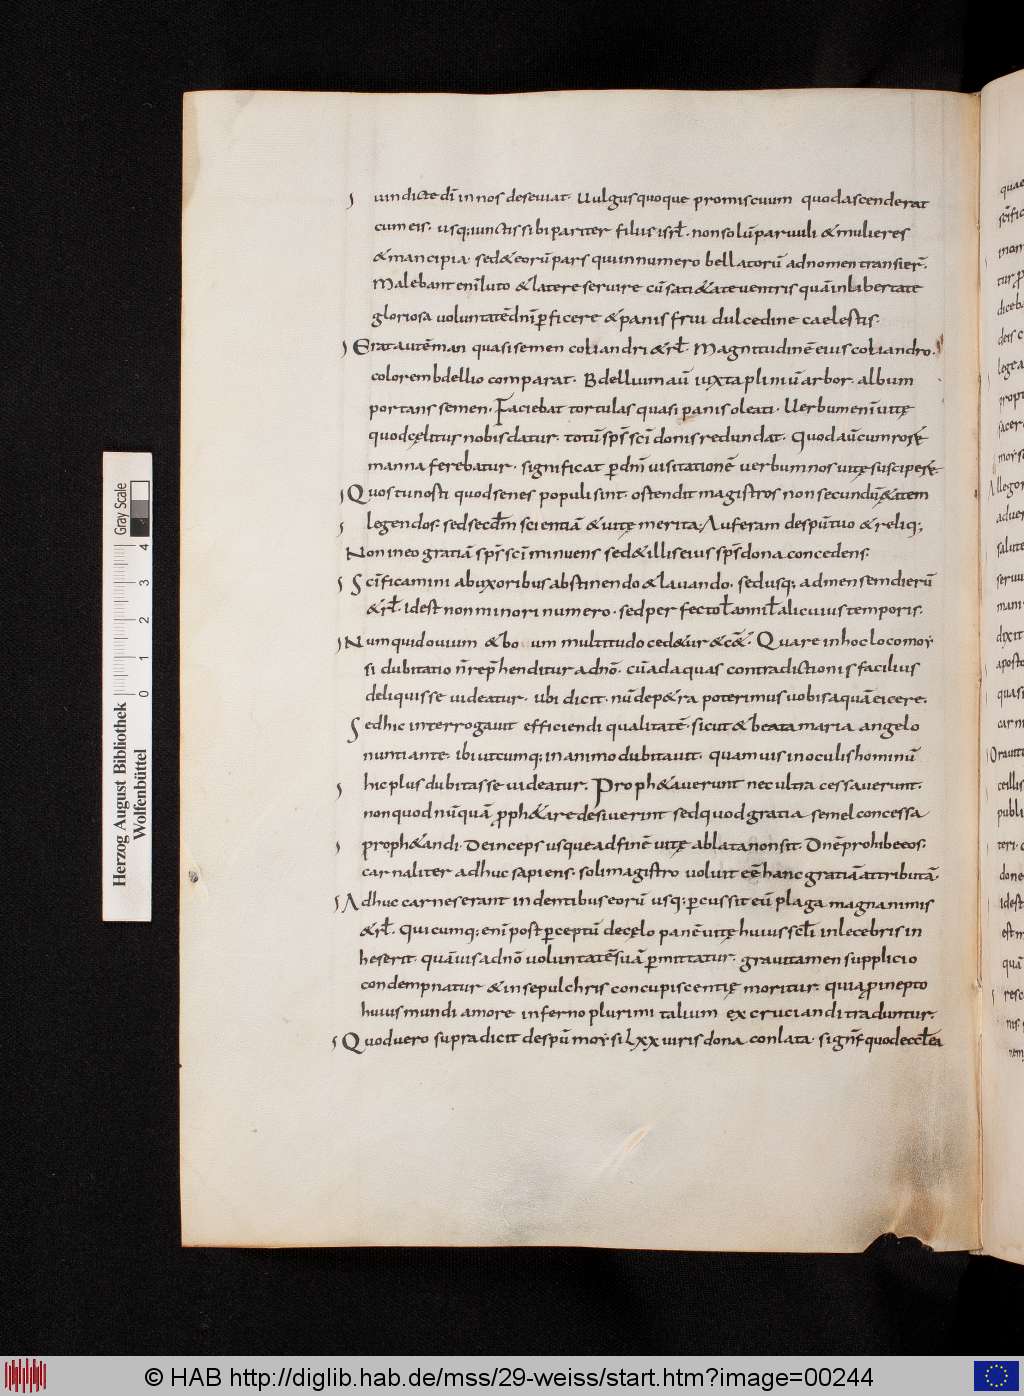 uindicte dī in nos deseuiat· Uulgus quoque promiscuum quod ascenderat
cum eis· usq; iunctis sibi pariter filiis isrł· non solū paruuli & mulieres
& mancipia· sed & eorū pars qui in numero bellatorū ad nomen transier̄·
Malebant enī luto & latere seruire cū satietate uentris quā in libertate
gloriosa uoluntatē dnī p̄ficere & panis frui dulcedine caelestis·
Erat autē man quasi semen coriandri & rł· Magnitudinē eius coriandro·
colorem bdellio comparat· Bdellium aū iuxta pliniū arbor· album
portans semen· Faciebat tortulas quasi panis oleati· Uerbum enī uitę
quod cęlitur nobis datur· totū sp̄s scī donis redundat· Quod aū cum rorē
manna ferebatur· significat p̄ dnī uisitationē uerbum nos uitę suscipere·
Quos tu nosti quod senes populi sint· ostendit magistros non secundū ętatem
legendos· sed secdm̄ scientiā & uitę merita; Auferam de spū tuo & reliq;
Non in eo gratiā sp̄s scī minuens sed & illis eius sp̄s dona concedens·
Scīficamini ab uxoribus abstinendo & lauando· sed usq; ad mensem dierū
& rł· idest non minori numero· sed perfecto ł anni ł alicuius temporis·
Numquid ouium & bo um multitudo cedetur & cā· Quare in hoc loco moy
si dubitatio n̄ rep̄henditur a dnō· cū ad aquas contradictionis facilius
deliquisse uideatur· ubi dicit· nū de petra poterimus uobis aquā eicere·
Sed hic interrogauit efficiendi qualitatē· sicut & beata maria angelo
nuntiante· ibi utcumq; in animo dubitauit· quamuis in oculis hominū
hic plus dubitasse uideatur· Proph&auerunt nec ultra cessauerunt·
non quod nūquā p̄ph&are desiuerint sed quod gratia semel concessa
proph&andi· Deinceps usque ad finē uitę ablata non sit· Dn̄e prohibe eos·
carnaliter adhuc sapiens· soli magistro uoluit eē hanc gratiā attributā·
Adhuc carnes erant in dentibus eorū usq; p̄cussit eū plaga magna nimis
& rł· Quicumq; enī post p̄ceptū de cęlo panē uitę huius sclī inlecebris in
heserit· quāuis a dnō uoluntatē suā p̄mittatur· graui tamen supplicio
condempnatur & in sepulchris concupiscentię moritur· quia p̄ inepto
huius mundi amore inferno plurimi talium excruciandi traduntur·
Quod uero supra dicit de spū moysi lxx uiris dona conlata· sign̄f quod ecclea
Gray Scale
4 3 2 1 0
Herzog August Bibliothek
Wolfenbüttel
© HAB http://diglib.hab.de/mss/29-weiss/start.htm?image=00244